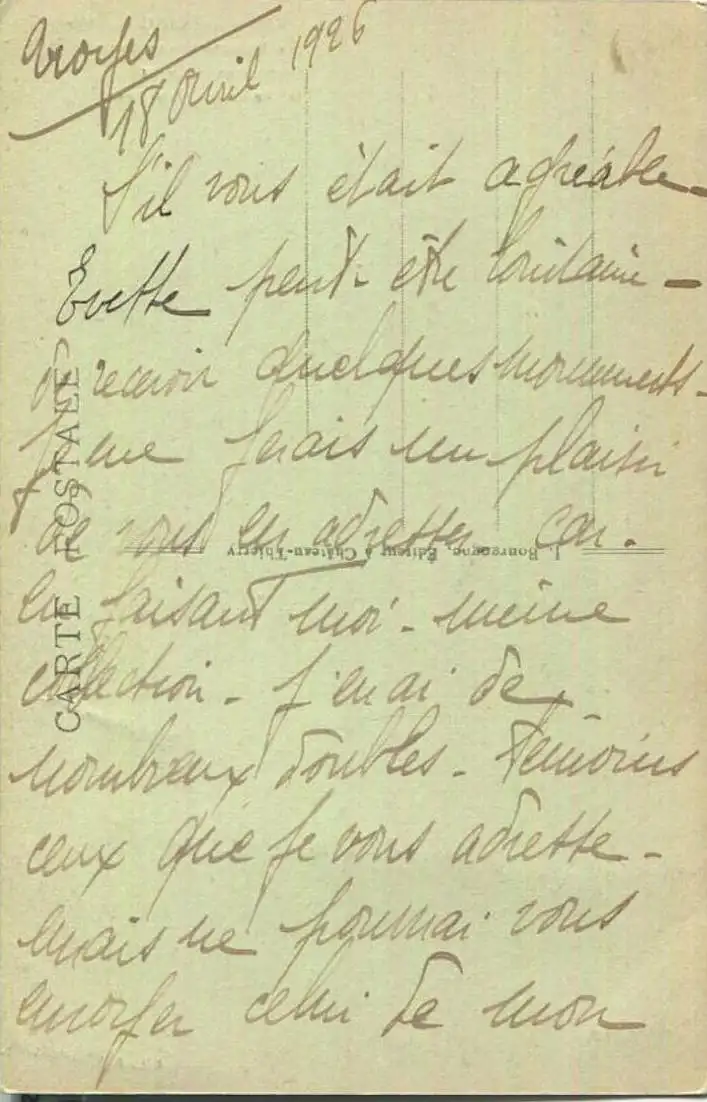 Troyes
18 Avril 1926
S'il vous était agréable
Evette peut-être
de recevoir quelques monuments -
je me ferais un plaisir
de vous en adresser car -
en faisant moi-même
collection - j'en ai de
nombreux doubles - témoins
ceux que je vous adresse -
mais ne pourrai vous
envoyer celui de mon
CARTE POSTALE
J. Bourgogne, Éditeur à Château-Thierry